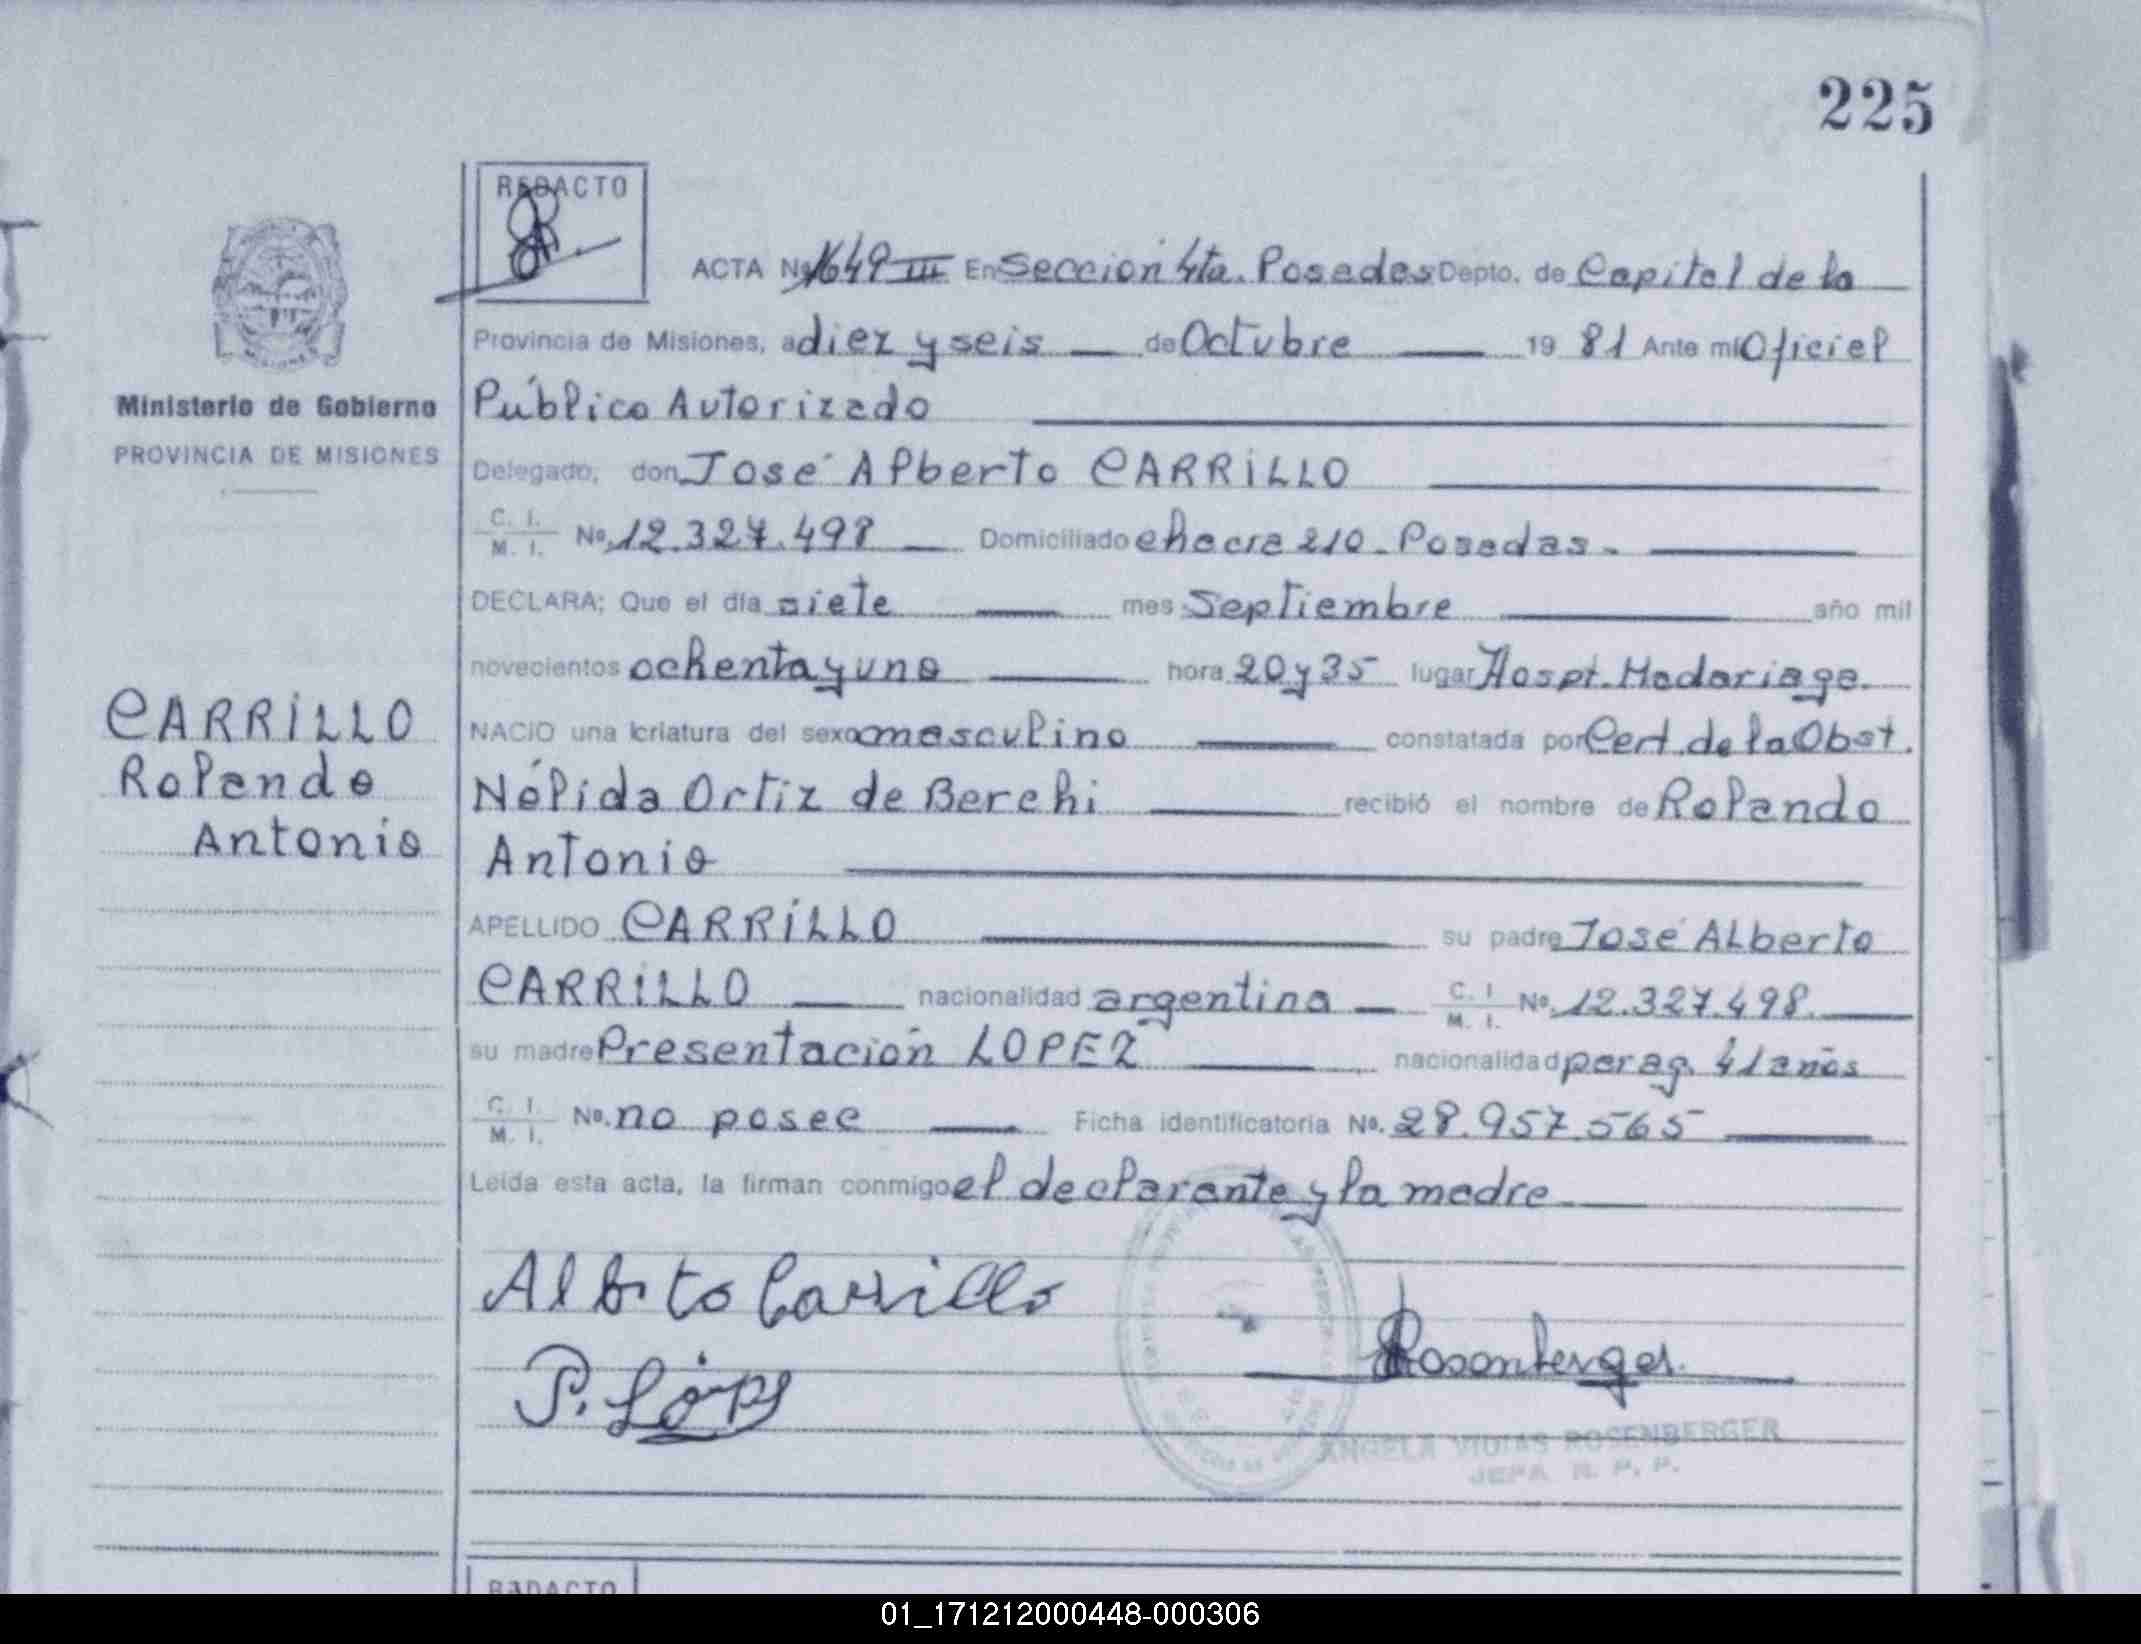 225
REDACTO
ACTA Nº 1649 III En Sección 4ta. Posadas Depto. de Capital de la
Provincia de Misiones, a diez y seis de Octubre 19 81 Ante mi Oficial
Ministerio de Gobierno
Público Autorizado
PROVINCIA DE MISIONES
Delegado, don José Alberto CARRILLO
C. I. M. I. Nº 12.327.498 Domiciliado chacra 210 - Posadas.
DECLARA; Que el día siete mes Septiembre año mil
novecientos ochenta y uno hora 20 y 35 lugar Hospt. Madariaga.
CARRILLO
Rolando
Antonio
NACIO una criatura del sexo masculino constatada por Cert. de la Obst.
Nélida Ortiz de Berchi recibió el nombre de Rolando
Antonio
APELLIDO CARRILLO su padre José Alberto
CARRILLO nacionalidad argentina C. I. M. I. Nº 12.327.498.
su madre Presentación LOPEZ nacionalidad parag. 41 años
C. I. M. I. Nº. no posee Ficha identificatoria Nº. 28.957.565
Leída esta acta, la firman conmigo el declarante y la madre
Alberto Carrillo
Rosenberger
P. López
ANGELA ROSENBERGER
JEFA R. P. P.
RADACTO
01_171212000448-000306